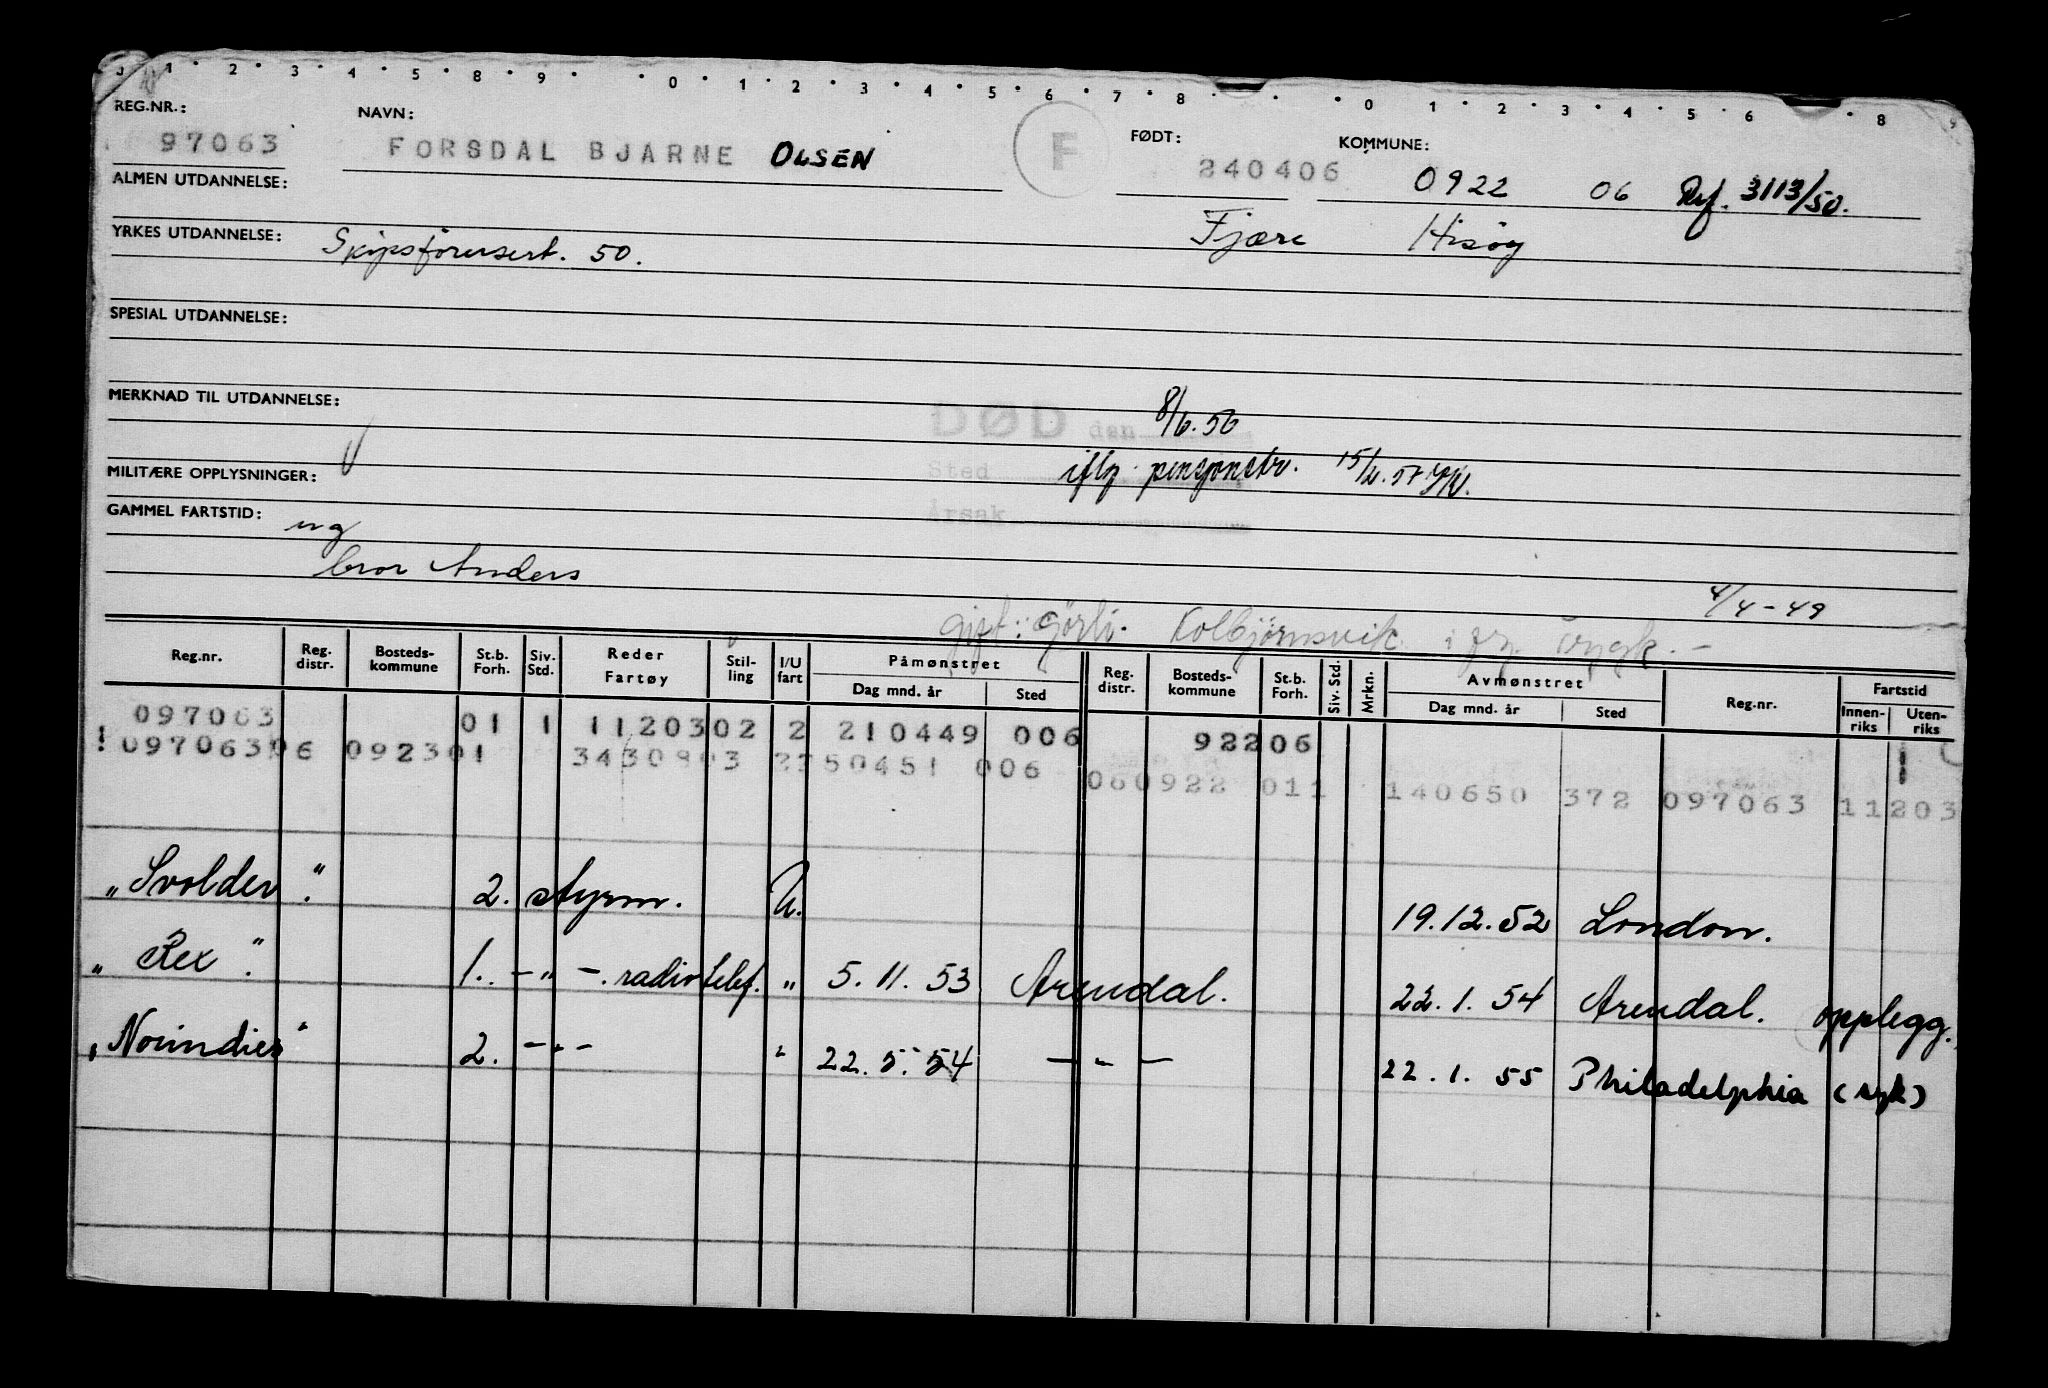 0 1 2 3 4 5 8 9 0 1 2 3 4 5 6 7 8 0 1 2 3 4 5 6 8 9
REG.NR.: NAVN: FØDT: KOMMUNE:
97063 FORSDAL BJARNE OLSEN F 240406 0922 06 Ref. 3113/50.
ALMEN UTDANNELSE:
Fjære Hisøy
YRKES UTDANNELSE: Skipsførersert. 50.
SPESIAL UTDANNELSE:
MERKNAD TIL UTDANNELSE:
DØD den 8/6.56
MILITÆRE OPPLYSNINGER: Sted iflg. pensjonstr. 15/2.57
GAMMEL FARTSTID: ug Årsak
bror Anders
4/4-49
gift: Kolbjørnsvik
Reg.nr. Reg. distr. Bosteds-kommune St.b. Forh. Siv. Std. Reder Fartøy Stil-ling I/U fart Påmønstret Dag mnd. år Sted Reg. distr. Bosteds-kommune St.b. Forh. Siv. Std. Mrkn. Avmønstret Dag mnd. år Sted Reg.nr. Fartstid Innen-riks Uten-riks
097063 01 1 1120302 2 210449 006 92206
060922 011 140650 372 097063 11203
"Svolder". 2. styrm. U. 19.12.52 London.
"Rex". 1. -"-. radiotelef. " 5.11.53 Arendal. 22.1.54 Arendal. opplegg.
2. -"- " 22.5.54 -"- 22.1.55 Philadelphia (syk)